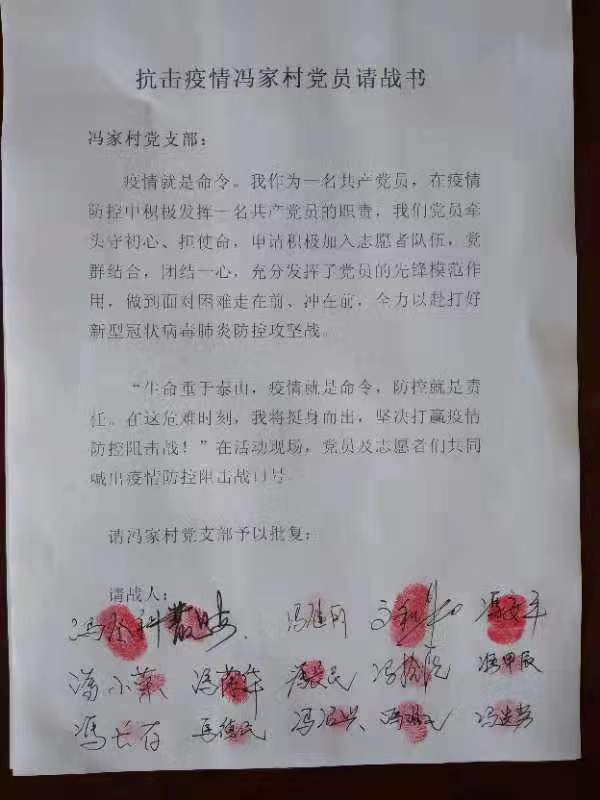 抗击疫情冯家村党员请战书
冯家村党支部：
疫情就是命令。我作为一名共产党员，在疫情
防控中积极发挥一名共产党员的职责，我们党员牵
头守初心、担使命，申请积极加入志愿者队伍，党
群结合，团结一心，充分发挥了党员的先锋模范作
用，做到面对困难走在前、冲在前，全力以赴打好
新型冠状病毒肺炎防控攻坚战。
“生命重于泰山，疫情就是命令，防控就是责
任。在这危难时刻，我将挺身而出，坚决打赢疫情
防控阻击战！”在活动现场，党员及志愿者们共同
喊出疫情防控阻击战口号。
请冯家村党支部予以批复：
请战人：
冯 冯 冯文平
冯 冯 冯甲辰
冯长存 冯 冯